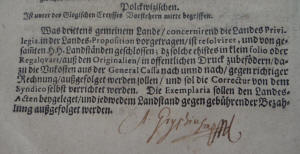 Polckwitzischen.
Ist unter des Glogischen Creysses Vorstehern mitte begriffen.
Was drittens gemeinem Lande / concernirend die Landes Privi-
legia, in der Landes-Proposition vorgetragen / ist resolviret, und von ge-
sambten HH. Landständen geschlossen / daß solche ehistes in klein folio oder
Regalqvart / auß den Originalien / in offentlichen Druck zubefördern / da-
zu die Unkosten auß der General Cassa nach unnd nach / gegen richtiger
Rechnung / außgefolget werden sollen / und sol die Correctur von dem
Syndico selbst verrichtet werden. Die Exemplaria sollen den Landes-
Acten beygeleget / und jedwedem Landstand gegen gebührender Bezah-
lung außgefolget werden.